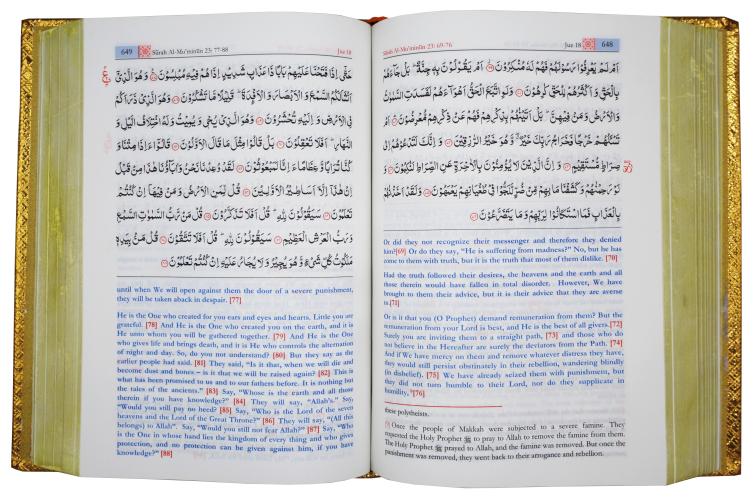 Sūrah Al-Mu'minūn 23: 69-76 Juz 18 648
اَمْ لَمْ يَعْرِفُوْا رَسُوْلَهُمْ فَهُمْ لَهٗ مُنْكِرُوْنَ ۝ اَمْ يَقُوْلُوْنَ بِهٖ جِنَّةٌ ؕ بَلْ جَآءَهُمْ
بِالْحَقِّ وَ اَكْثَرُهُمْ لِلْحَقِّ كٰرِهُوْنَ ۝ وَلَوِ اتَّبَعَ الْحَقُّ اَهْوَآءَهُمْ لَفَسَدَتِ السَّمٰوٰتُ
وَ الْاَرْضُ وَمَنْ فِيْهِنَّ ؕ بَلْ اَتَيْنٰهُمْ بِذِكْرِهِمْ فَهُمْ عَنْ ذِكْرِهِمْ مُّعْرِضُوْنَ ۝ اَمْ
تَسْـَٔلُهُمْ خَرْجًا فَخَرَاجُ رَبِّكَ خَيْرٌ ۖ وَّ هُوَ خَيْرُ الرّٰزِقِيْنَ ۝ وَ اِنَّكَ لَتَدْعُوْهُمْ اِلٰى
صِرَاطٍ مُّسْتَقِيْمٍ ۝ وَ اِنَّ الَّذِيْنَ لَا يُؤْمِنُوْنَ بِالْاٰخِرَةِ عَنِ الصِّرَاطِ لَنٰكِبُوْنَ ۝ وَ
لَوْ رَحِمْنٰهُمْ وَ كَشَفْنَا مَا بِهِمْ مِّنْ ضُرٍّ لَّلَجُّوْا فِيْ طُغْيَانِهِمْ يَعْمَهُوْنَ ۝ وَلَقَدْ اَخَذْنٰهُمْ
بِالْعَذَابِ فَمَا اسْتَكَانُوْا لِرَبِّهِمْ وَمَا يَتَضَرَّعُوْنَ ۝
Or did they not recognize their messenger and therefore they denied
him?[69] Or do they say, "He is suffering from madness?" No, but he has
come to them with truth, but it is the truth that most of them dislike. [70]
Had the truth followed their desires, the heavens and the earth and all
those therein would have fallen in total disorder. However, We have
brought to them their advice, but it is their advice that they are averse
to.[71]
Or is it that you (O Prophet) demand remuneration from them? But the
remuneration from your Lord is best, and He is the best of all givers.[72]
Surely you are inviting them to a straight path, [73] and those who do
not believe in the Hereafter are surely the deviators from the Path. [74]
And if We have mercy on them and remove whatever distress they have,
they would still persist obstinately in their rebellion, wandering blindly
(in disbelief). [75] We have already seized them with punishment, but
they did not turn humble to their Lord, nor do they supplicate in
humility, [76]
these polytheists.
Once the people of Makkah were subjected to a severe famine. They
requested the Holy Prophet ﷺ to pray to Allah to remove the famine from them.
The Holy Prophet ﷺ prayed to Allah, and the famine was removed. But once the
punishment was removed, they went back to their arrogance and rebellion.
649 Sūrah Al-Mu'minūn 23: 77-88 Juz 18
حَتّٰۤى اِذَا فَتَحْنَا عَلَيْهِمْ بَابًا ذَا عَذَابٍ شَدِيْدٍ اِذَا هُمْ فِيْهِ مُبْلِسُوْنَ ۝ وَ هُوَ الَّذِيْۤ
اَنْشَاَ لَكُمُ السَّمْعَ وَ الْاَبْصَارَ وَ الْاَفْـِٕدَةَ ؕ قَلِيْلًا مَّا تَشْكُرُوْنَ ۝ وَ هُوَ الَّذِيْ ذَرَاَكُمْ
فِي الْاَرْضِ وَ اِلَيْهِ تُحْشَرُوْنَ ۝ وَ هُوَ الَّذِيْ يُحْيٖ وَ يُمِيْتُ وَ لَهُ اخْتِلَافُ الَّيْلِ وَ
النَّهَارِ ؕ اَفَلَا تَعْقِلُوْنَ ۝ بَلْ قَالُوْا مِثْلَ مَا قَالَ الْاَوَّلُوْنَ ۝ قَالُوْۤا ءَاِذَا مِتْنَا وَ
كُنَّا تُرَابًا وَّ عِظَامًا ءَاِنَّا لَمَبْعُوْثُوْنَ ۝ لَقَدْ وُعِدْنَا نَحْنُ وَ اٰبَآؤُنَا هٰذَا مِنْ قَبْلُ
اِنْ هٰذَاۤ اِلَّاۤ اَسَاطِيْرُ الْاَوَّلِيْنَ ۝ قُلْ لِّمَنِ الْاَرْضُ وَ مَنْ فِيْهَاۤ اِنْ كُنْتُمْ
تَعْلَمُوْنَ ۝ سَيَقُوْلُوْنَ لِلّٰهِ ؕ قُلْ اَفَلَا تَذَكَّرُوْنَ ۝ قُلْ مَنْ رَّبُّ السَّمٰوٰتِ السَّبْعِ
وَ رَبُّ الْعَرْشِ الْعَظِيْمِ ۝ سَيَقُوْلُوْنَ لِلّٰهِ ؕ قُلْ اَفَلَا تَتَّقُوْنَ ۝ قُلْ مَنْۢ بِيَدِهٖ
مَلَكُوْتُ كُلِّ شَيْءٍ وَّ هُوَ يُجِيْرُ وَ لَا يُجَارُ عَلَيْهِ اِنْ كُنْتُمْ تَعْلَمُوْنَ ۝
until when We will open against them the door of a severe punishment,
they will be taken aback in despair. [77]
He is the One who created for you ears and eyes and hearts. Little you are
grateful. [78] And He is the One who created you on the earth, and it is
He unto whom you will be gathered together. [79] And He is the One
who gives life and brings death, and it is He who controls the alternation
of night and day. So, do you not understand? [80] But they say as the
earlier people had said. [81] They said, "Is it that, when we will die and
become dust and bones – is it that we will be raised again? [82] This is
what has been promised to us and to our fathers before. It is nothing but
the tales of the ancients." [83] Say, "Whose is the earth and all those
therein if you have knowledge?" [84] They will say, "Allah's." Say,
"Would you still pay no heed? [85] Say, "Who is the Lord of the seven
heavens and the Lord of the Great Throne?" [86] They will say, "(All this
belongs) to Allah". Say, "Would you still not fear Allah?" [87] Say, "Who
is the One in whose hand lies the kingdom of every thing and who gives
protection, and no protection can be given against him, if you have
knowledge?" [88]